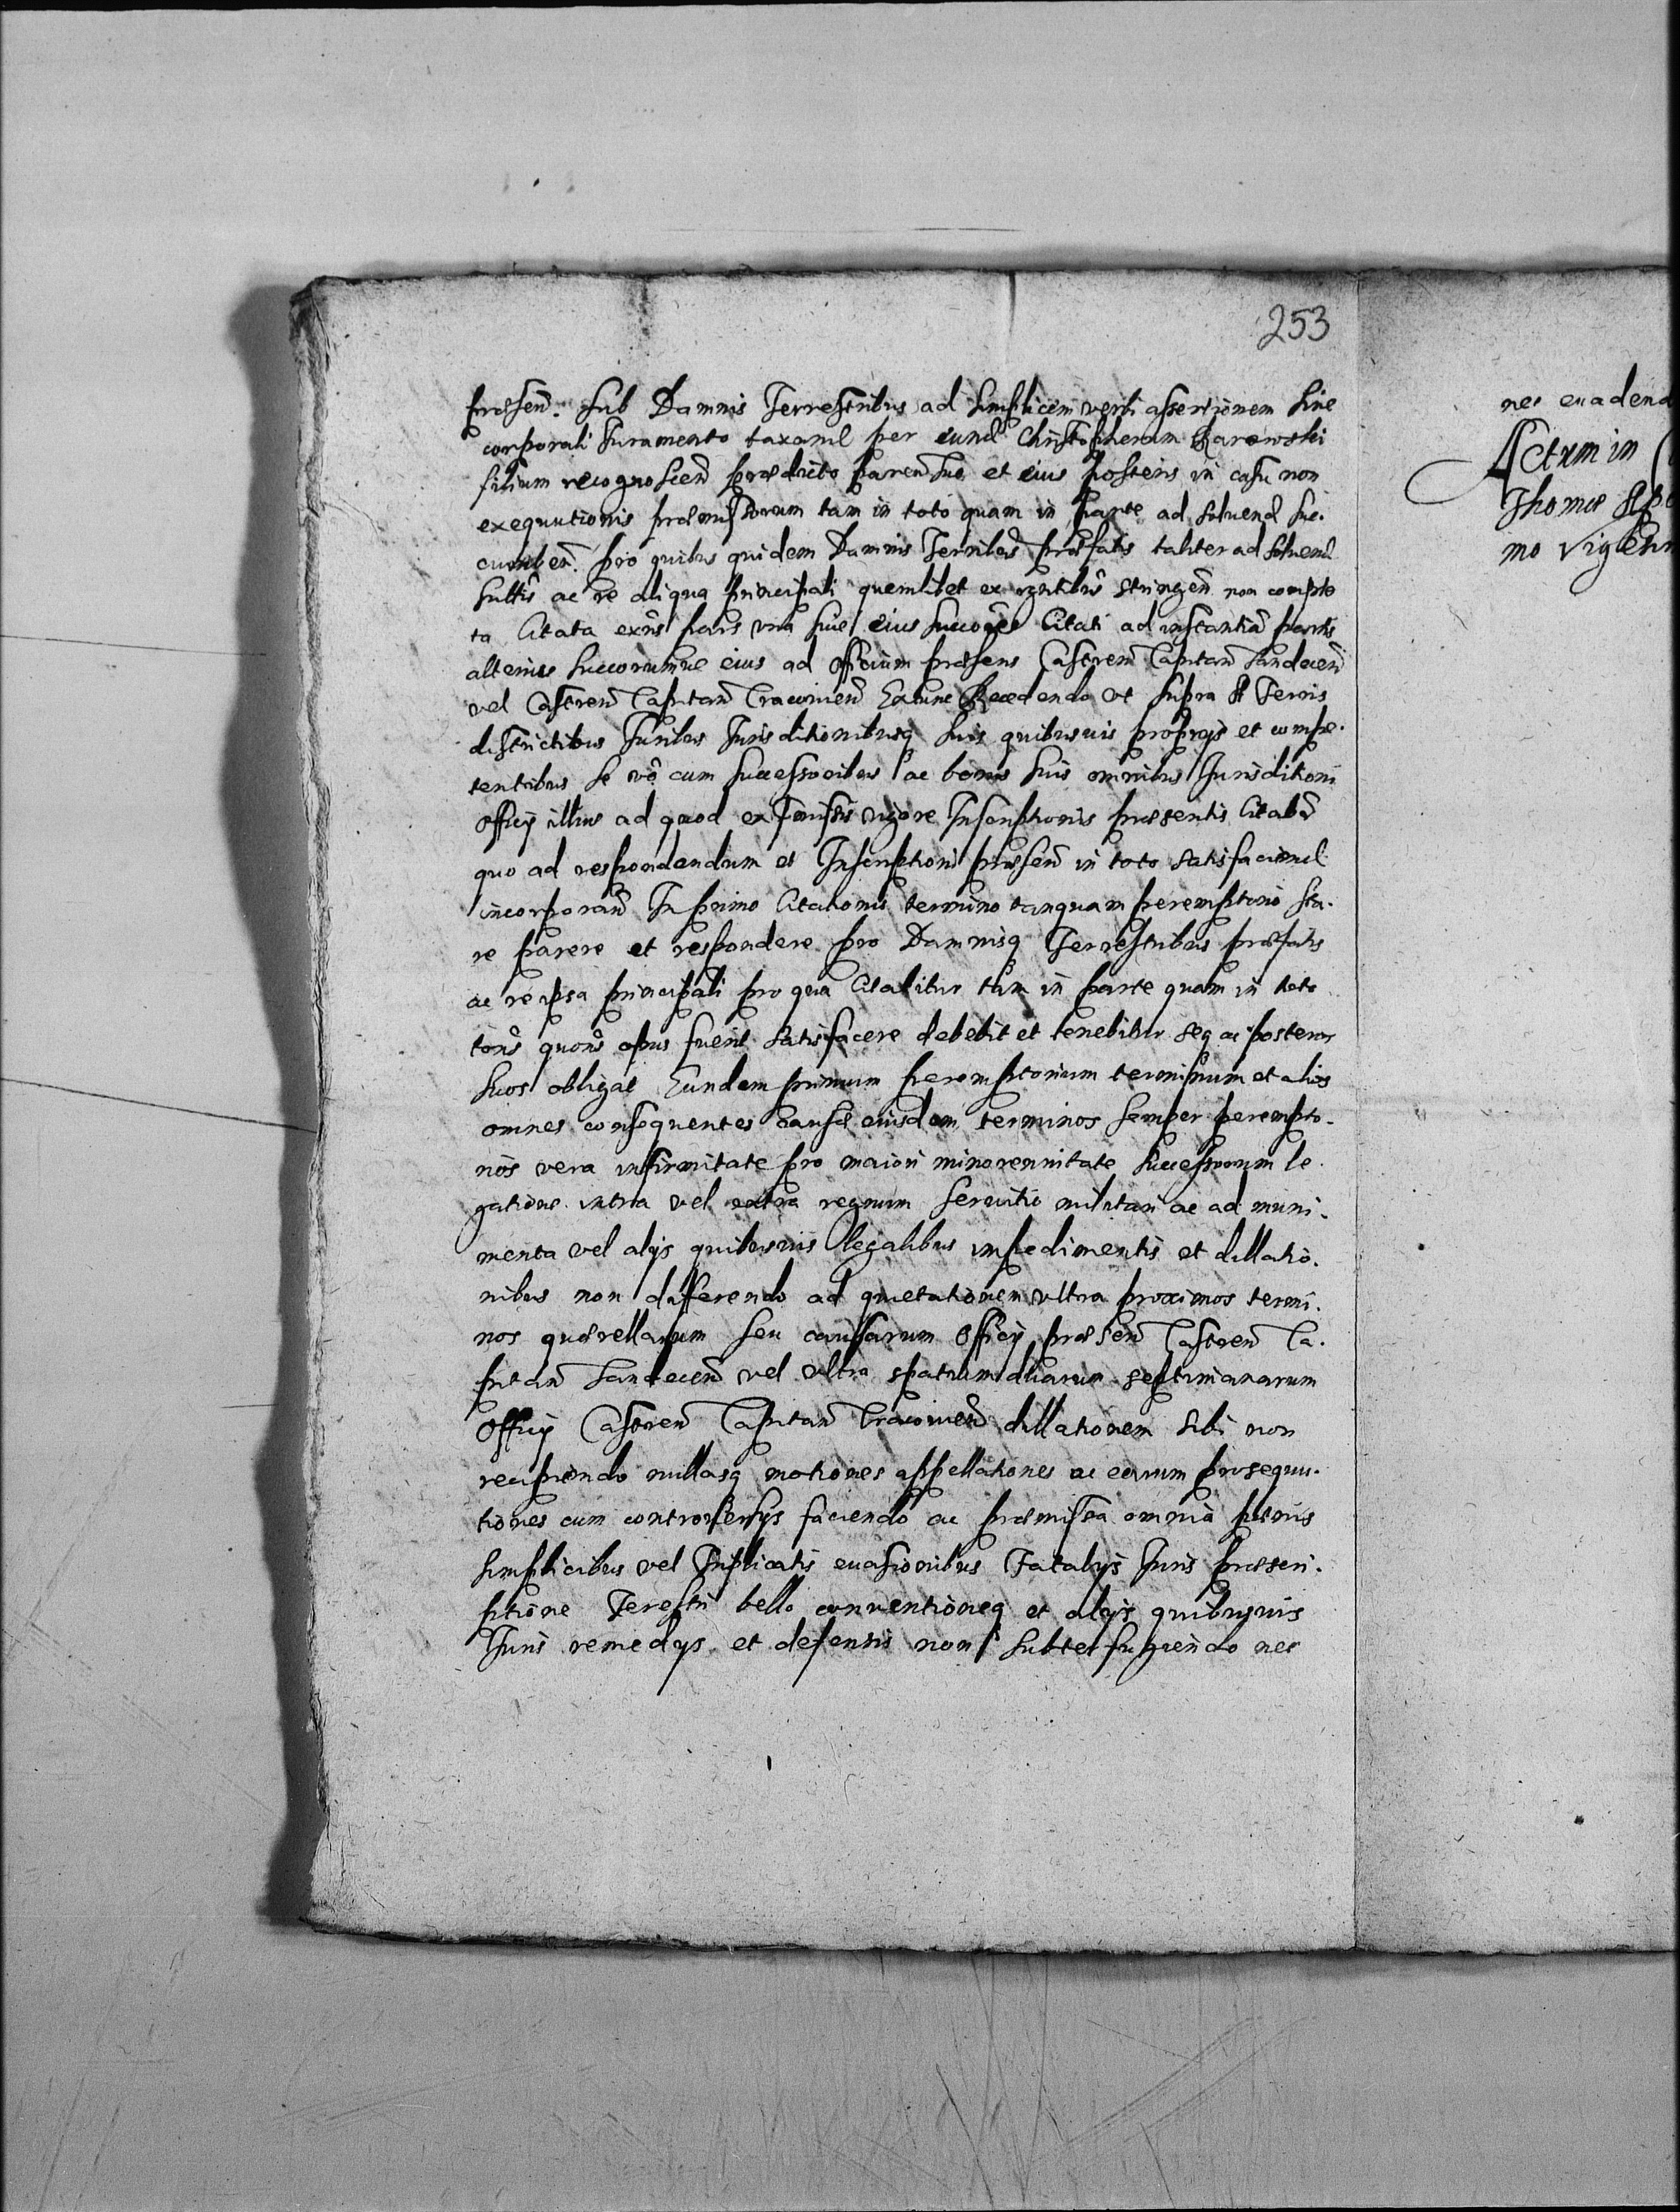 253
præsen. sub Damnis Terrestribus ad simplicem verbi assertionem sine
corporali Iuramento taxand per eund Christopherum
filium recognoscen prædicto paren suo et eius posteris in casu non
exequutionis præmissorum tam in toto quam in parte ad soluend suc.
cumben. pro quibus quidem Damnis Terribus præfatis taliter ad soluend
sultis ac re aliqua principali quemlibet ex stringen non comple
ta Citata exns pars vna siue eius succores Citati ad instantia partis
alterius succorumue eius ad Officium præsens Castren Capitan Sandecen
vel Castren Capitan Cracouien Extunc Recedendo vt supra A Terris
districtibus Iuribus Iurisditionibusq suis quibusuis proprijs et compe.
tentibus se vo cum successoribus ac bonis suis omnibus Iurisditioni
Officij illius ad quod ex vigore Inscriptionis præsentis Citabr
quo ad respondendum et Inscriptioni præsen in toto satisfaciend
incorporan In primo Citationis termino tanquam peremptorio sta.
re parere et respondere pro Damnisq Terrestribus præfatis
ac re ipsa principali pro qua Citabitur tam in parte quam in toto
toties quoties opus fuerit satisfacere debebit et tenebitur seq ac posteros
suos obligat Eundem primum peremptorium terminum et alios
omnes consequentes causæ eiusdem terminos semper perempto.
rios vera infirmitate pro maiori minorennitate successorum le.
gatione intra vel extra regnum seruitio militari ac ad muni.
menta vel alijs quibusuis legalibus impedimentis et dillatio.
nibus non differendo ad quietationem vltra proximos termi.
nos quærellarum seu causarum Officij præsen Castren Ca.
pitan Sandecen vel vltra spatium duarum septimanarum
Officij Castren Capitan Cracouien dillationem sibi non
recipiendo nullasq motiones appellationes ac earum prosequu.
tiones cum controuersijs faciendo ac præmissa omnia
simplicibus vel Triplicatis euasionibus Fatalijs Iuris præscri.
ptione Terestri bello conuentioneq et alijs quibusuis
Iuris remedijs et defensis non subterfugiendo nec
nec euadend
Actum in
Thomæ
mo